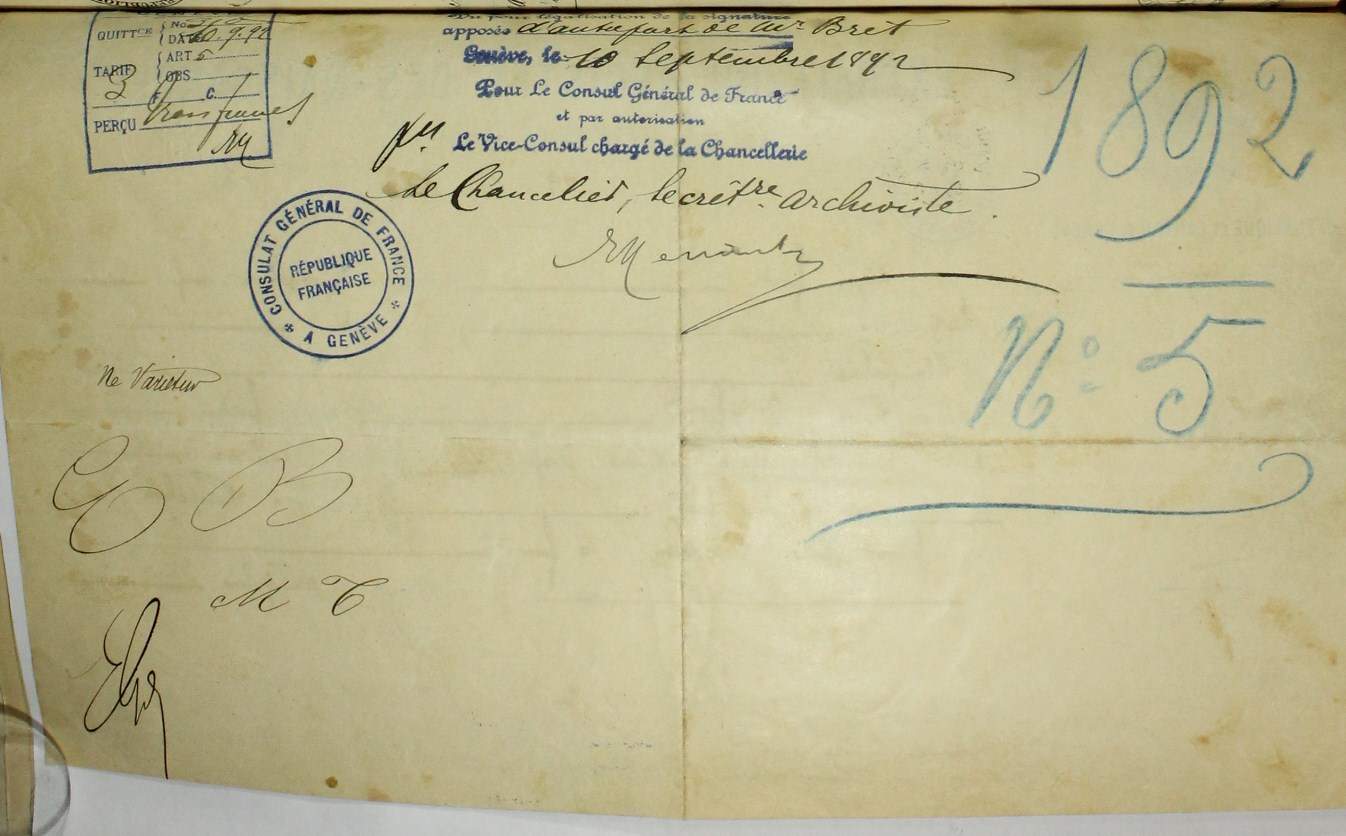 QUITTCE
No
DATE 10.9.92
ART 5
OBS
TARIF 3 F. C.
PERÇU trois francs
Vu pour légalisation de la signature
apposée d'autre part de Mr Bret
Genève, le 10 Septembre 1892
Pour Le Consul Général de France
et par autorisation
Le Vice-Consul chargé de la Chancellerie
Le Chancelier, Secrétre archiviste.
CONSULAT GÉNÉRAL DE FRANCE
A GENÈVE
RÉPUBLIQUE
FRANÇAISE
1892
No 5
Ne Varietur
E B
M T